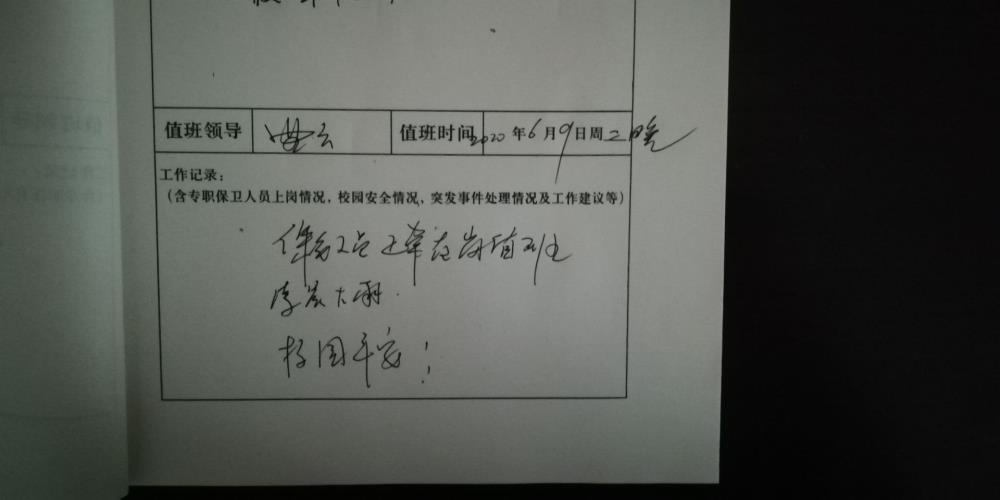 值班领导 曲云 值班时间 2020年6月9日周二晚
工作记录：
（含专职保卫人员上岗情况，校园安全情况，突发事件处理情况及工作建议等）
保安人员正常在岗值班
大雨.
校园平安！